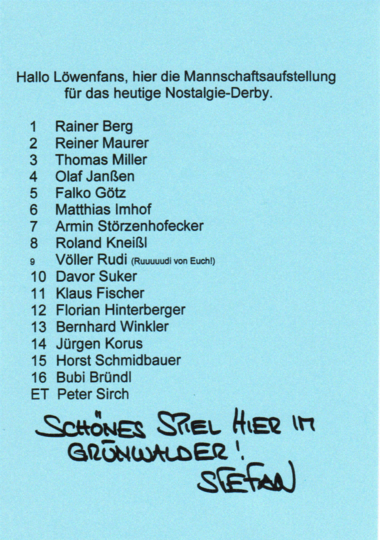 Hallo Löwenfans, hier die Mannschaftsaufstellung
für das heutige Nostalgie-Derby.
1 Rainer Berg
2 Reiner Maurer
3 Thomas Miller
4 Olaf Janßen
5 Falko Götz
6 Matthias Imhof
7 Armin Störzenhofecker
8 Roland Kneißl
9 Völler Rudi (Ruuuuudi von Euch!)
10 Davor Suker
11 Klaus Fischer
12 Florian Hinterberger
13 Bernhard Winkler
14 Jürgen Korus
15 Horst Schmidbauer
16 Bubi Bründl
ET Peter Sirch
SCHÖNES SPIEL HIER IM
GRÜNWALDER!
STEFAN